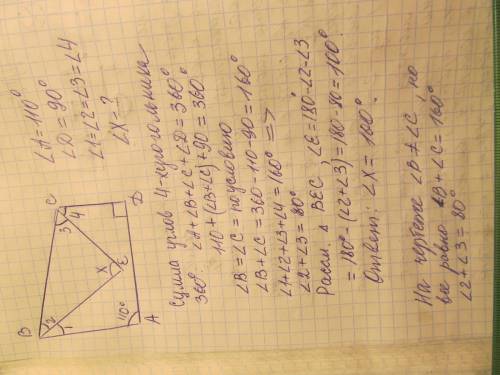 B
C
A
D
E
X
1
2
3
4
110°
∠A = 110°
∠D = 90°
∠1 = ∠2 = ∠3 = ∠4
∠X = ?
Сумма углов 4-хугольника
360°. ∠A+∠B+∠C+∠D = 360°
110+(∠B+∠C)+90 = 360.
∠B = ∠C = по условию
∠B+∠C = 360-110-90 = 160°
∠1+∠2+∠3+∠4 = 160° =>
∠2+∠3 = 80°
Рассм. △ BEC, ∠E = 180-∠2-∠3
= 180°-(∠2+∠3) = 180-80 = 100°.
Ответ: ∠X = 100°.
На чертеже ∠B ≠ ∠C, но
все равно ∠B+∠C = 160°
∠2+∠3 = 80°